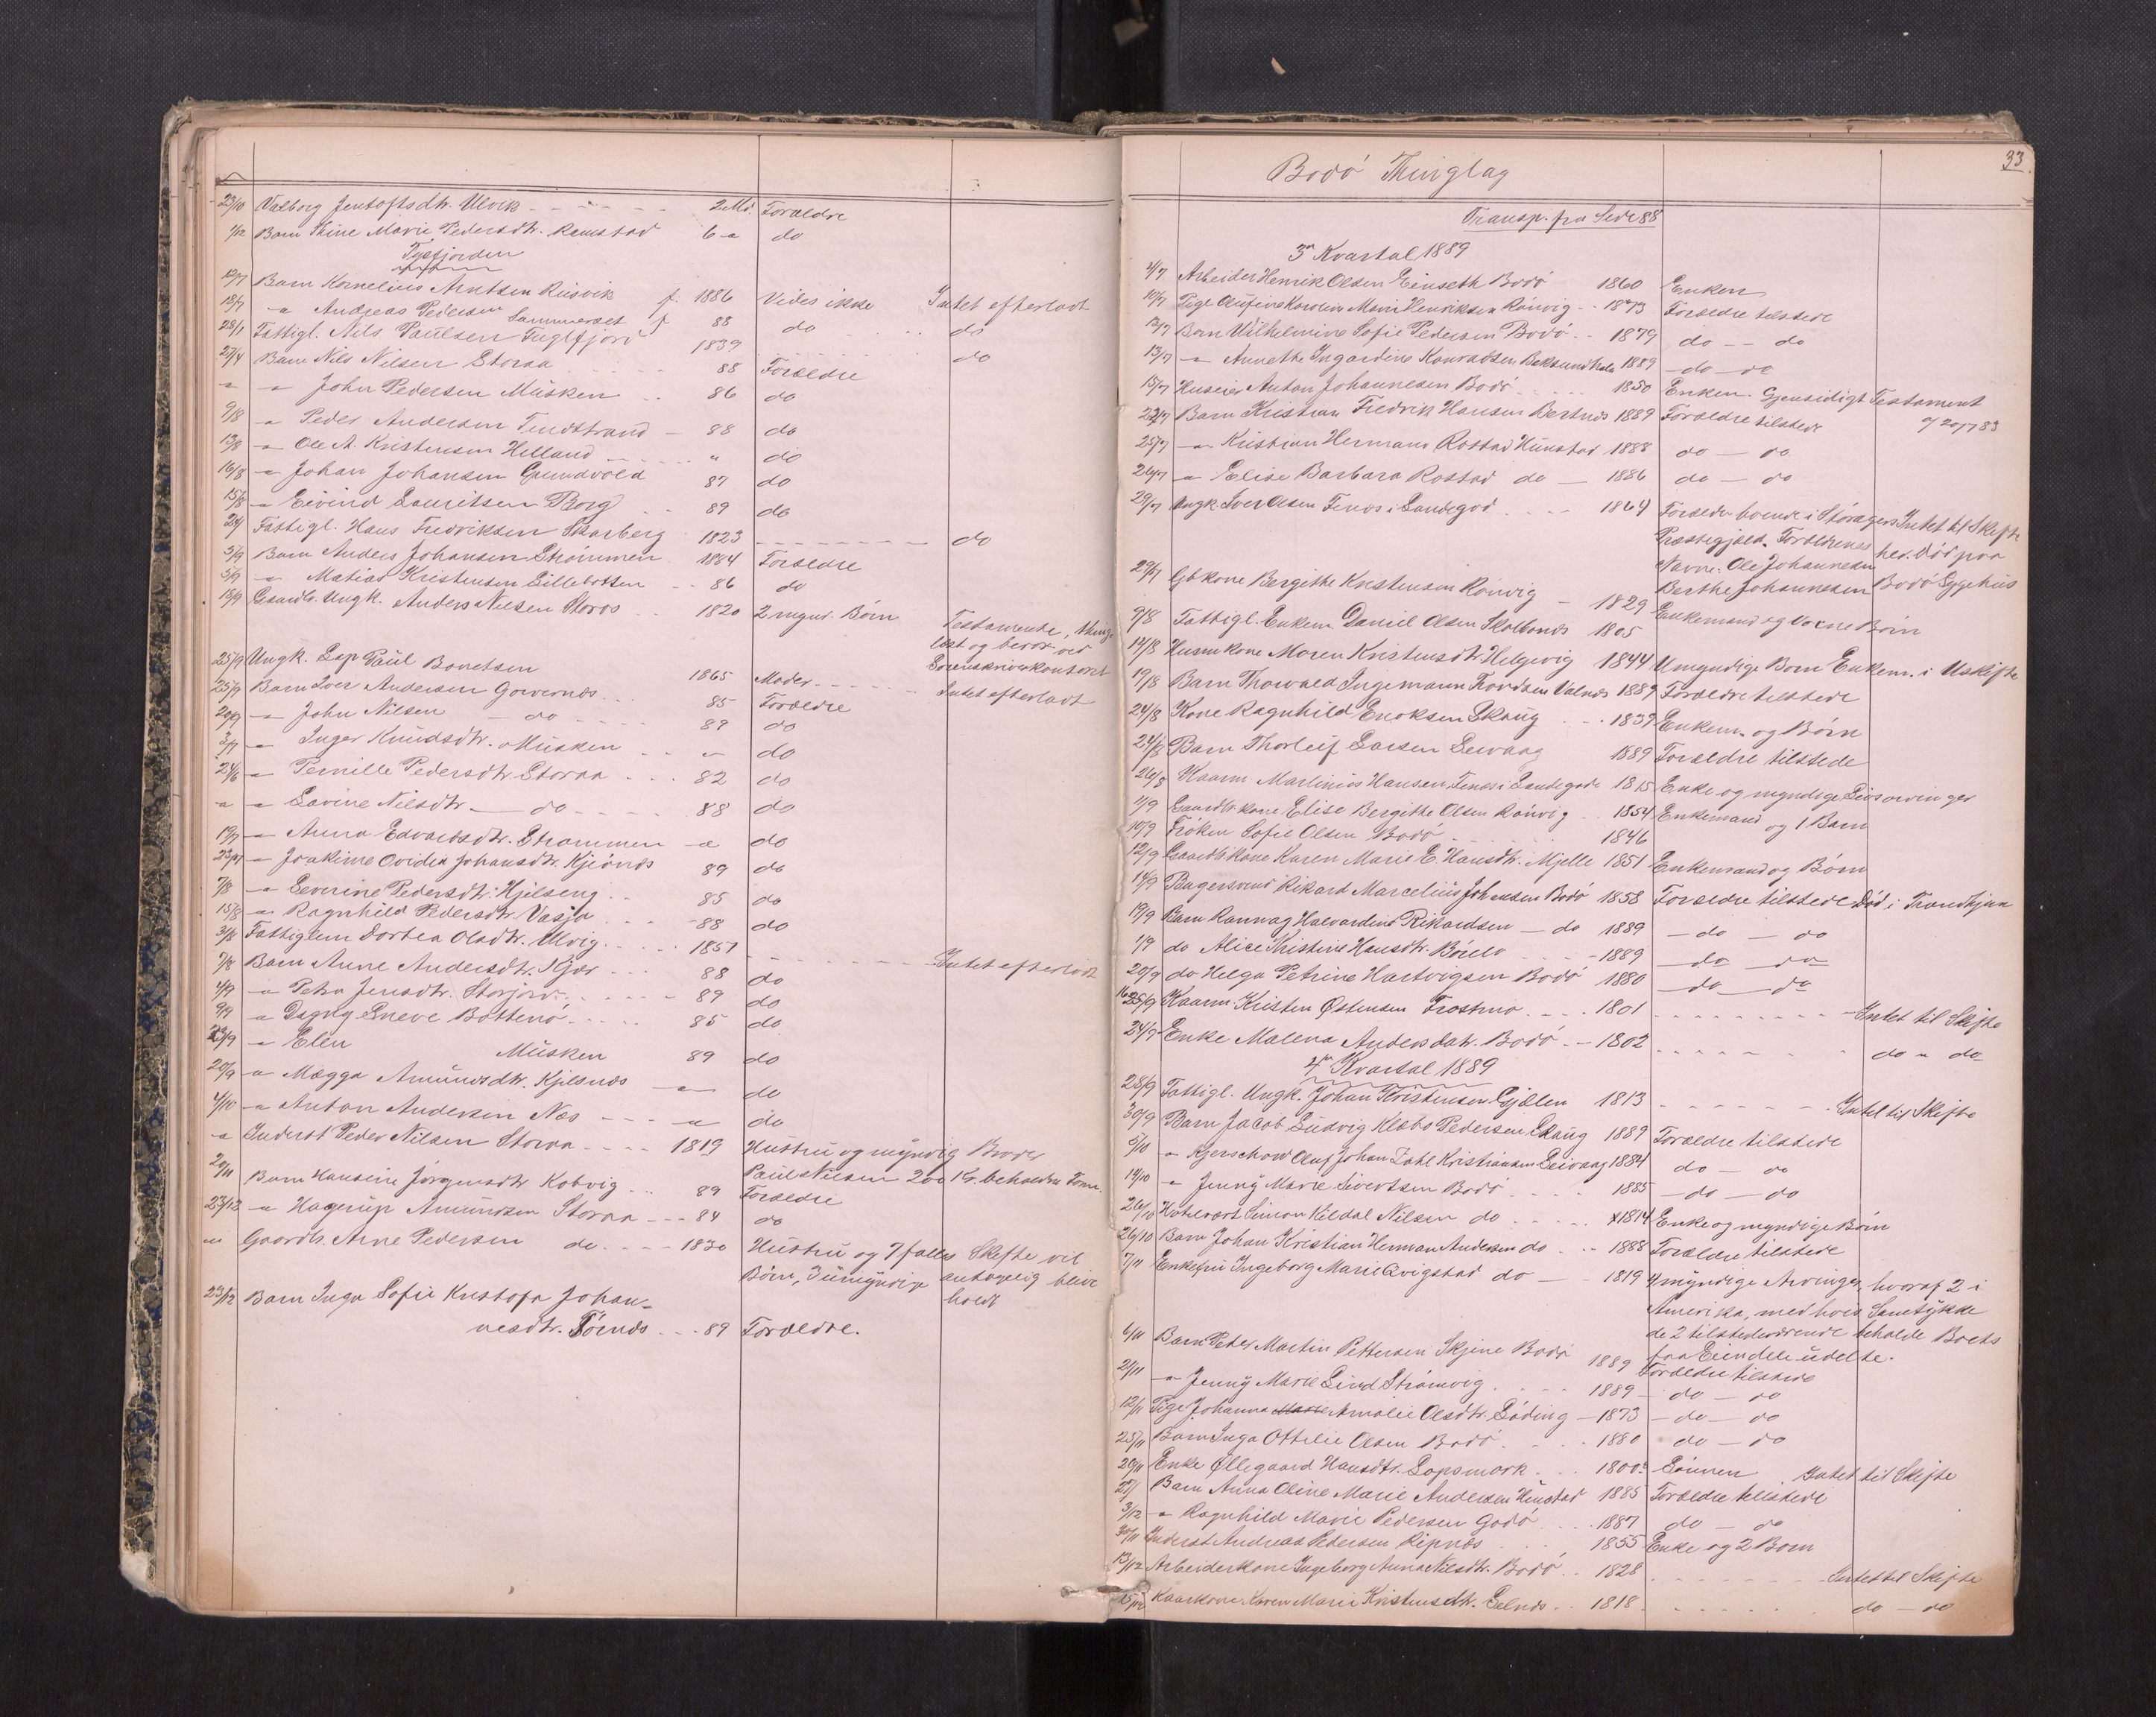 23/10 Valborg Jentoftsdtr. Ulvik - - - - - 2 Md. Forældre
1/12 Barn Stine Marie Pedersdtr. Remstad 6 " do
Tysfjorden
12/7 Barn Kornelius Arntsen Riisvik f. 1886 Vides ikke Intet efterladt
18/7 " Andreas Pedersen Sammeraset f 88 do do
28/1 Fattigl. Nils Paulsen Fuglfjord 1839 do
27/4 Barn Nils Nilsen Storaa 88 Forældre
" " John Pedersen Müsken 86 do
9/8 " Peder Andersen Tindstrand - 88 do
13/8 " Ole A. Kristensen Helland " do
16/8 " Johan Johansen Grundvold 87 do
15/8 " Eivind Lauritsen Borg 89 do
Fattigl. Hans Fredriksen Skarberg 1823 do
5/9 Barn Anders Johansen Strømmen 1884 Forældre
5/9 " Matias Kristensen Lillebotten 86 do
16/9 Gaardbr. Ungk. Anders Nilsen Storos 1820 2 mynd. Børn Testamente, thing-
læst og beror ved
Sorenskriverkontoret
25/9 Ungk. Lap Paul Bonetsen 1865 Moder Intet efterladt
25/9 Barn Iver Andersen Gowernæs 85 Forældre
20/9 " John Nilsen do 89 do
3/7 " Inger Knudsdtr. Müsken " do
24/6 " Pernille Pedersdtr Storaa 82 do
" " Lavine Nilsdtr. do 88 do
19/7 " Anna Edvardsdtr. Strømmen " do
23/7 " Joakime Ovidia Johansdtr. Kjiønæs 89 do
7/8 " Severine Pedersdtr. Hjelseng 85 do
15/8 " Ragnhild Pedersdtr. Vasja 88 do
3/8 Fattiglem Dortea Olsdtr. Ulvig 1851 Intet efterladt
7/8 Barn Anne Andersdtr. Kjær 88 do
4/9 " Petra Jensdtr. Storjord 89 do
9/9 " Dagny Sneve Bottenø 85 do
23/9 " Elen Müsken 89 do
20/9 " Mægga Amundsdtr. Kjelsnæs " do
4/10 " Anton Andersen Næs " do
" Inderst Peder Nilsen Storaa 1819 Hustru og myndig Broder
Paul Nilsen 200 Kr. beholdn Form.
20/11 Barn Hansine Jörgensdtr Kobvig 89 Forældre
23/12 " Hagerup Amundsen Storaa 84 do
" Gaardbr. Arne Pedersen do 1830 Hustru og 7 fælles Skifte vil
Børn, 3 umyndige antagelig blive
holdt
23/12 Barn Inga Sofie Kristofa Johan-
nesdtr. Förnæs 89 Forældre.
33
Bodö Thinglag
Transp. fra Side 88
3die Kvartal 1889
4/7 Arbeider Henrik Olsen Einseth Bodö 1860 Enken
10/7 Pige Olufine Karoline Marie Henriksen Rönvig 1873 Forældre tilstede
12/7 Barn Wilhelmine Sofie Pedersen Bodö 1879 do - do
13/7 " Annethe Ingardine Konradsen 1889 do - do
15/7 Huseier Anton Johannesen Bodö 1850 Enken. Gjensidigt Testament
af 20/7 83
22/7 Barn Kristian Fredrik Hansen Bertnæs 1889 Forældre tilstede
25/7 " Kristian Hermann Rostad Hunstad 1888 do - do
26/7 " Elise Barbara Rostad do 1886 do - do
29/7 Ungk. Iver Olsen Fenes i Landegod 1864 Forældre boende i Intet til Skifte
Præstegjeld. Forældrenes her. Død paa
Navne: Ole Johannesen Bodö Sygehus
Berthe Johannesen
28/7 Gbkone Bergithe Kristensen Rönvig 1829 Enkemand og voxne Børn
9/8 Fattigl. Enkem. Daniel Olsen Skalbones 1805
14/8 Husmkone Maren Kristensdtr. Helgevig 1844 Umyndige Børn Enkem. i Uskifte
19/8 Barn Thorvald Ingemann Tordsen Valnæs 1889 Forældre tilstede
24/8 Kone Ragnhild Enoksen Skaug 1839 Enkem. og Børn
24/8 Barn Thorleif Larsen Seivaag 1889 Forældre tilstede
26/8 Kaarm. Martinius Hansen Fenes i Landegode 1815 Enke og myndige Livsarvinger
1/9 Gaardbrkone Elise Bergithe Olsen Rönvig 1854 Enkemand og 1 Barn
10/9 Fröken Sofie Olsen Bodö 1846
12/9 Gaardbrkone Karen Marie E. Hansdtr. Mjelle 1851 Enkemand og Børn
14/9 Bagersvend Rikard Marcelius Johansen Bodö 1858 Forældre tilstede Død i Trondhjem
19/9 Barn Rannag Halvardine Rikardsen - do 1889 - do - do
1/9 do Alice Kristine Hansdtr. 1889 - do - do
20/9 do Helga Petrine Hartvigsen Bodö 1880 - do - do
25/9 Kaarm. Kristen Østensen Frostmo 1801 Intet til Skifte
24/9 Enke Malena Andersdatr. Bodö 1802 do " do
4de Kvartal 1889
28/9 Fattigl. Ungk. Johan Kristensen Gjælen 1813 Intet til Skifte
30/9 Barn Jacob Ludvig Klæbo Pedersen Skaug 1889 Forældre tilstede
5/10 " Kjerschow Oluf Johan Zahl Kristiansen Seivaag 1884 do - do
14/10 " Jenny Marie Sivertsen Bodö 1885 - do - do
26/10 Hotelvært Simon Kildal Nilsen do x1814 Enke og myndige Børn
26/10 Barn Johan Kristian Herman Andersen do 1888 Forældre tilstede
7/11 Enkefru Ingeborg Marie Qvigstad do 1819 4 myndige Arvinger, hvoraf 2 i
Amerika, med hvis Samtykke
de 2 tilstedeværende beholde Boets
faa Eiendele udelte.
6/11 Barn Peter Martin Pettersen Skjine Bodö 1889 Forældre tilstede
21/11 " Jenny Marie Lind Strömvig 1889 - do - do
12/11 Pige Johanna Marie Amalie Olsdtr Löding 1873 - do - do
25/11 Barn Inga Ottilie Olsen Bodö 1880 do - do
20/11 Enke Øllegaard Hansdtr. Sopsmork 1800 Sönnen Intet til Skifte
Barn Anna Oline Marie Andersen Hunstad 1885 Forældre tilstede
3/12 " Ragnhild Marie Pedersen Godö 1887 do - do
30/11 Inderst Andreas Pedersen Ripnæs 1855 Enke og 2 Børn
13/12 Arbeiderkone Ingeborg Anna Nilsdtr. Bodö 1828 Intet til Skifte
15/12 Kaarkone Karen Marie Kristensdtr. 1818 do - do